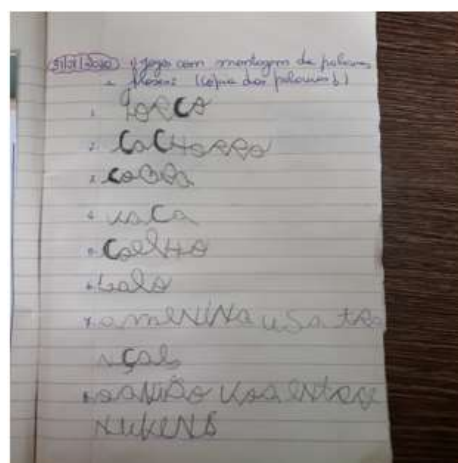 jogo com montagem de palavras
frases: (cópia das palavras)
1. PORCO
2. CACHORRO
3. COBRA
4. VACA
5. COELHO
6. GALO
7. A MENINA USA TRA
NÇAS
8. O AVIÃO VOA ENTRE
NUVENS